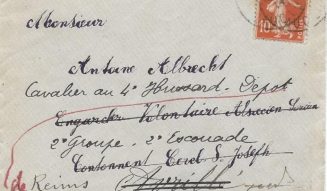 Monsieur
10
Antoine Albrecht
Cavalier au 4e Hussard - Dépot
Engagé Volontaire Alsacien Lorrain
2e Groupe - 2e Escouade
Cantonnent Cercl S. Joseph
de Reims